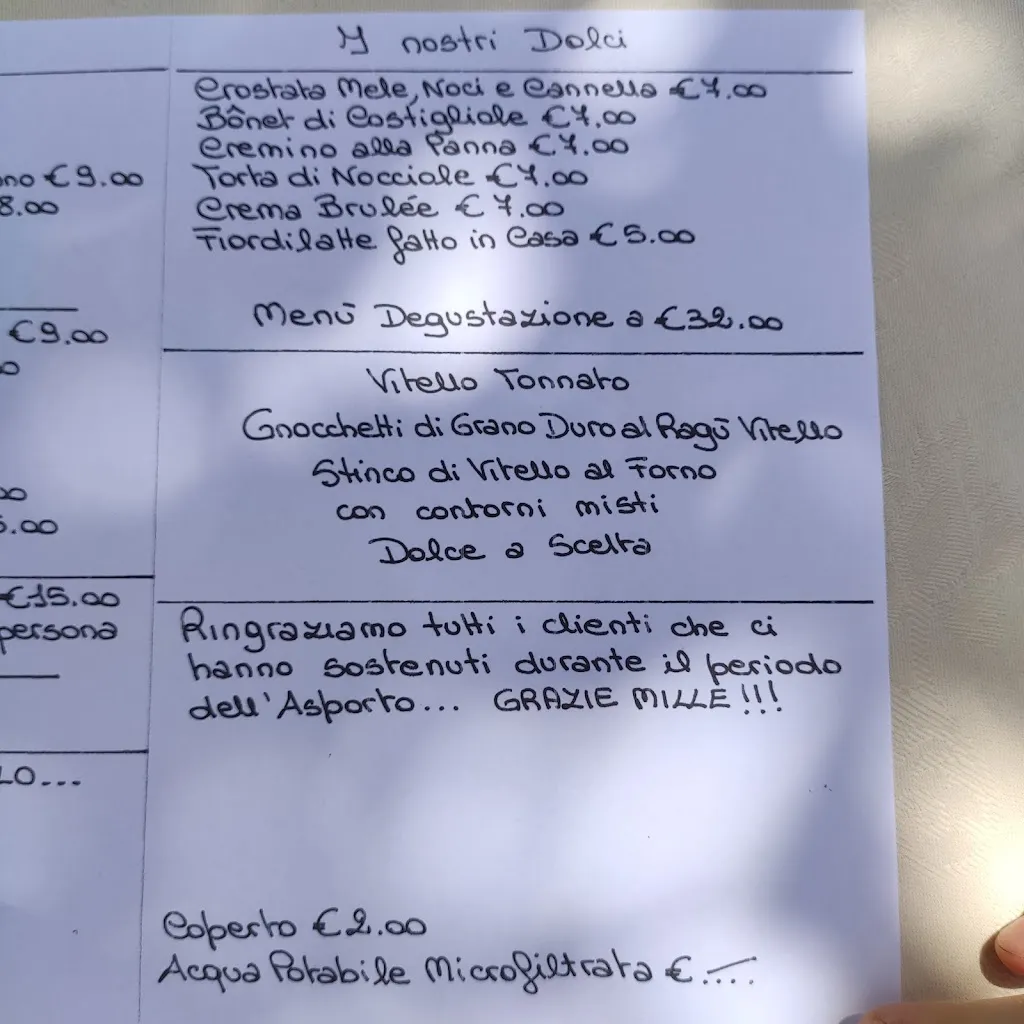 I nostri Dolci
Crostata Mele, Noci e Cannella €7.00
Bônet di Costigliole €7.00
Cremino alla Panna €7.00
Torta di Nocciole €7.00
Crema Brulée €7.00
Fiordilatte fatto in Casa €5.00
Menū Degustazione a €32.00
Vitello Tonnato
Gnocchetti di Grano Duro al Ragū Vitello
Stinco di Vitello al Forno
con contorni misti
Dolce a Scelta
Ringraziamo tutti i clienti che ci
hanno sostenuti durante il periodo
dell'Asporto... GRAZIE MILLE!!!
Coperto €2.00
Acqua Potabile Microfiltrata € ....
€9.00
8.00
€9.00
5.00
€15.00
persona
LO...